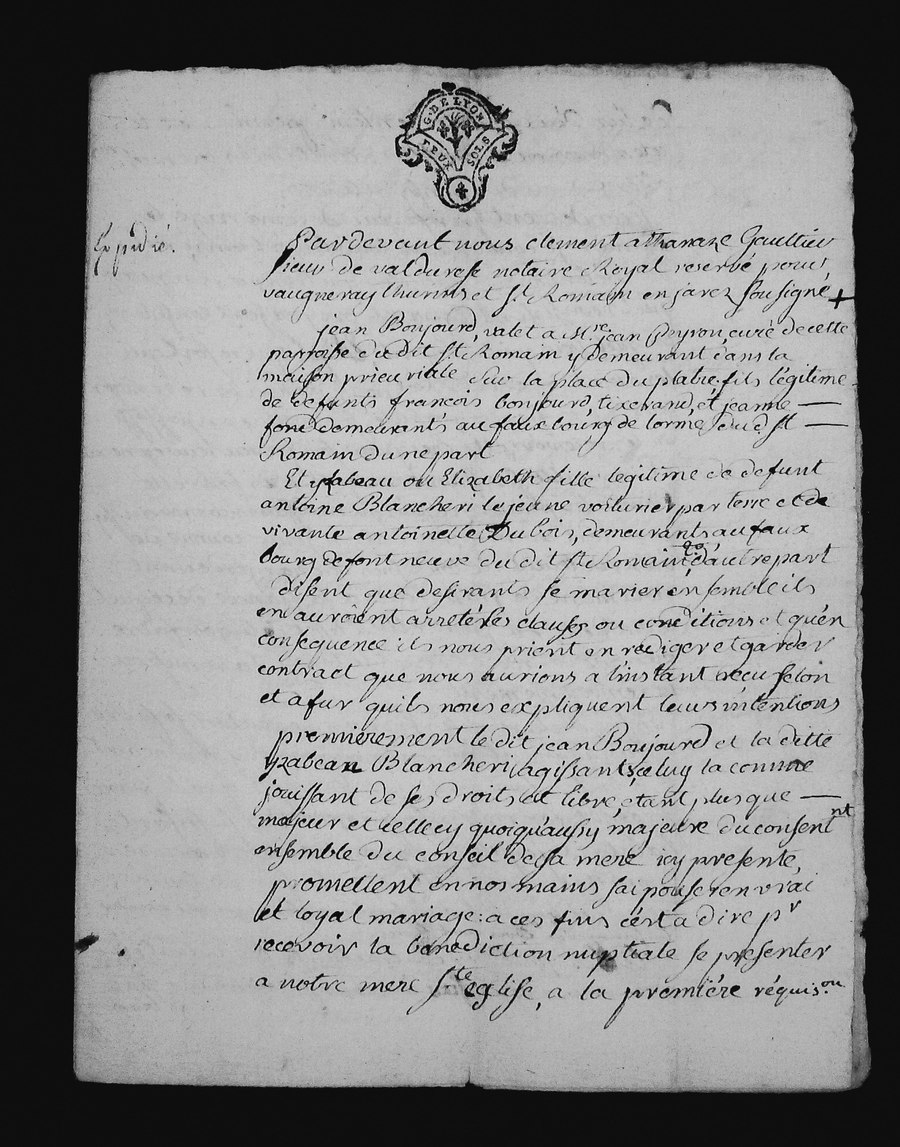 G. DE LYON
DEUX SOLS
Expedié.
Pardevant nous clement athanaze Gaultier
sieur de valdurese notaire Royal reservé pour
vaugneray thurins et St. Romain en jarez soussigné +
jean Boujourd, valet a Mre. jean Peyron, curé de cette
parroisse du dit St. Romain y demeurant dans la
maison prieuriale sur la place du platre, fils légitime
de defunts francois boujourd, tixerand, et jeanne —
fond demeurants au fauxbourg de lorme du d. St —
Romain dune part
Et yzabeau ou Elizabeth fille legitime de defunt
antoine Blancheri le jeune voiturier par terre et de
vivante antoinette Dubois, demeurants au faux
bourg de font neuve du dit St. Romain d'autre part
disent que desirants se marier ensemble ils
en auroient arretés les clauses ou conditions et qu'en
consequence ils nous prient en rediger et garder
contract que nous aurions a l'instant recu selon
et a fur quils nous expliquent leurs intentions
premierement le dit jean Boujourd et la ditte
yzabeau Blancheri, agissants celuy la comme
jouissant de ses droits et libre, étant plus que —
majeur et celle cy quoiqu'aussy majeure du consentnt
ensemble du conseil de sa mere icy presente,
promettent en nos mains s'ai pouser en vrai
et loyal mariage : a ces fins c'est a dire pr
recevoir la benediction nuptiale se presenter
a notre mere Ste eglise, a la premiére réquison